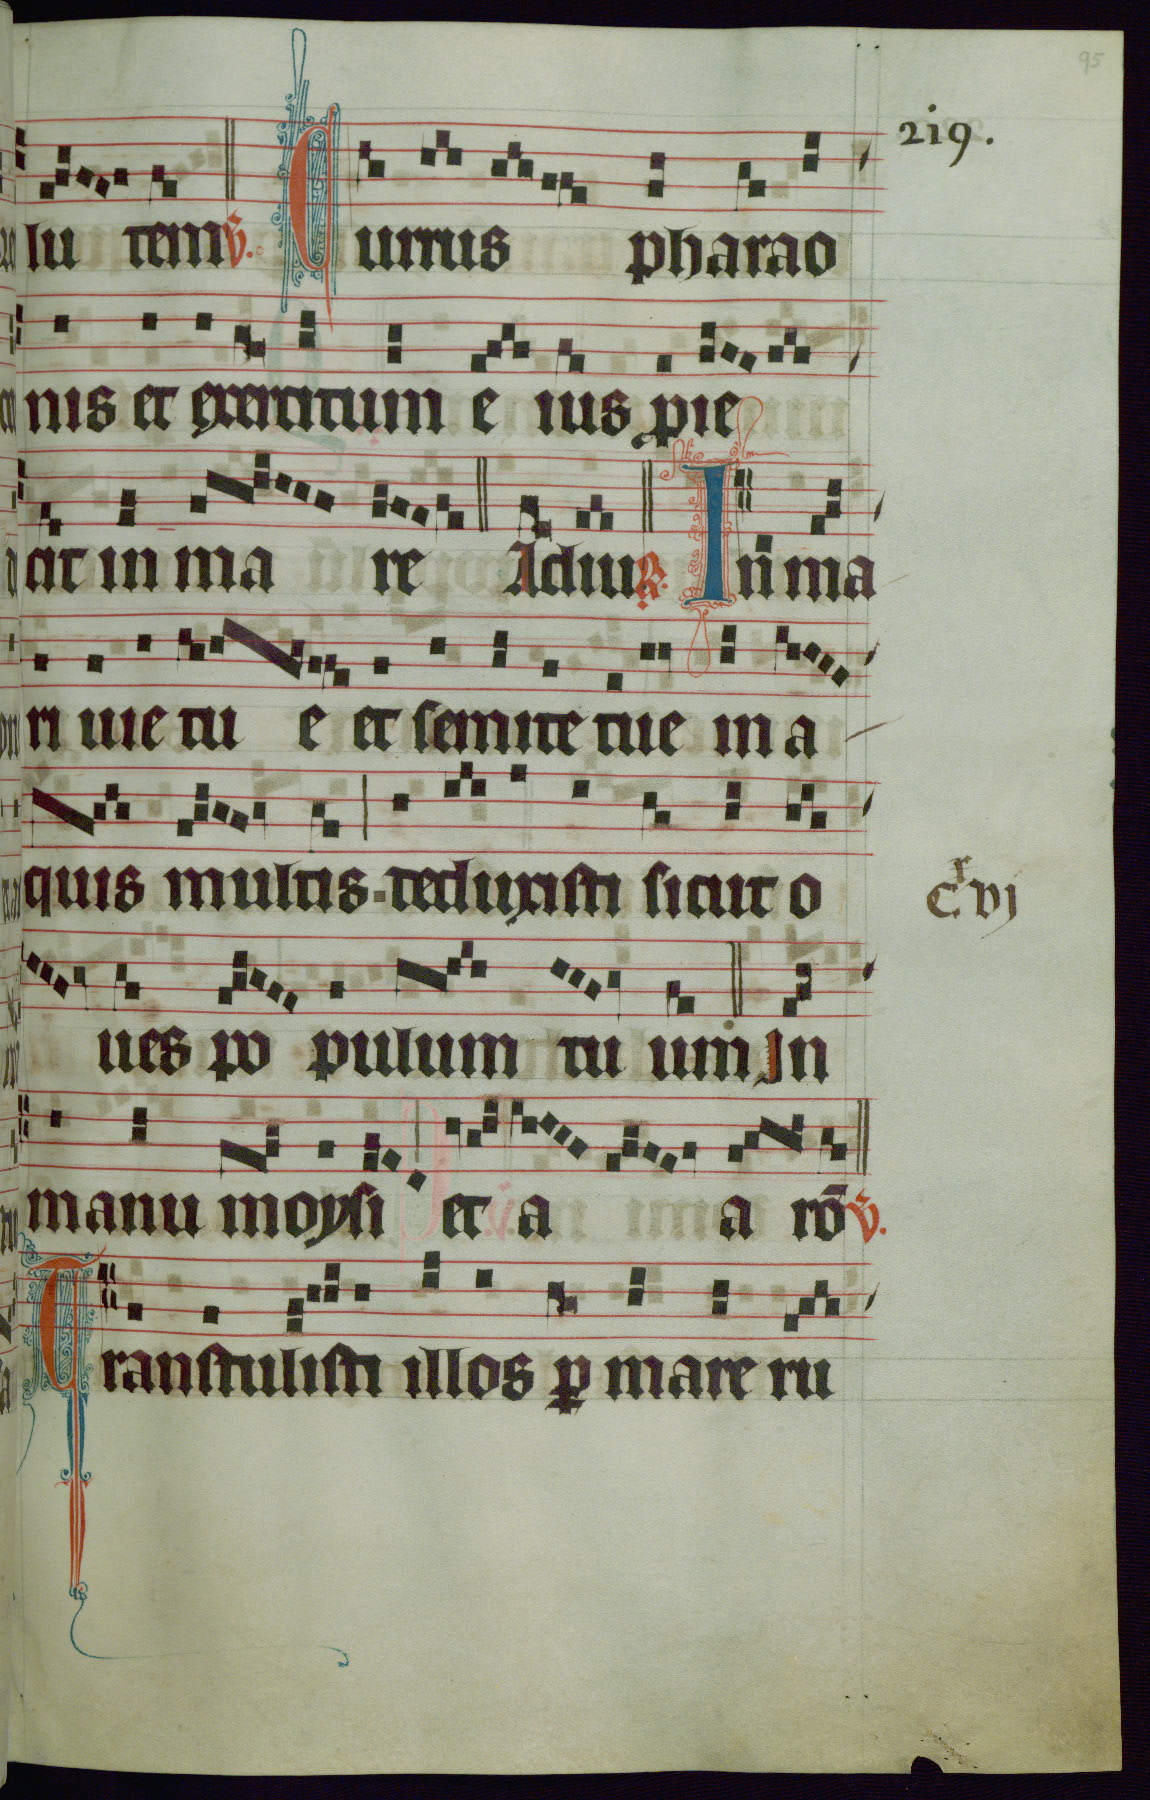 95
219.
lu tem V. Currus pharao
nis et exercitum e ius pie
cit in ma re Adiu R. In ma
ri uie tu e et semite tue in a
quis multis. deduxisti sicut o
ues po pulum tu um In
manu moysi et a a rō V.
Transtulisti illos p mare ru
cxvj